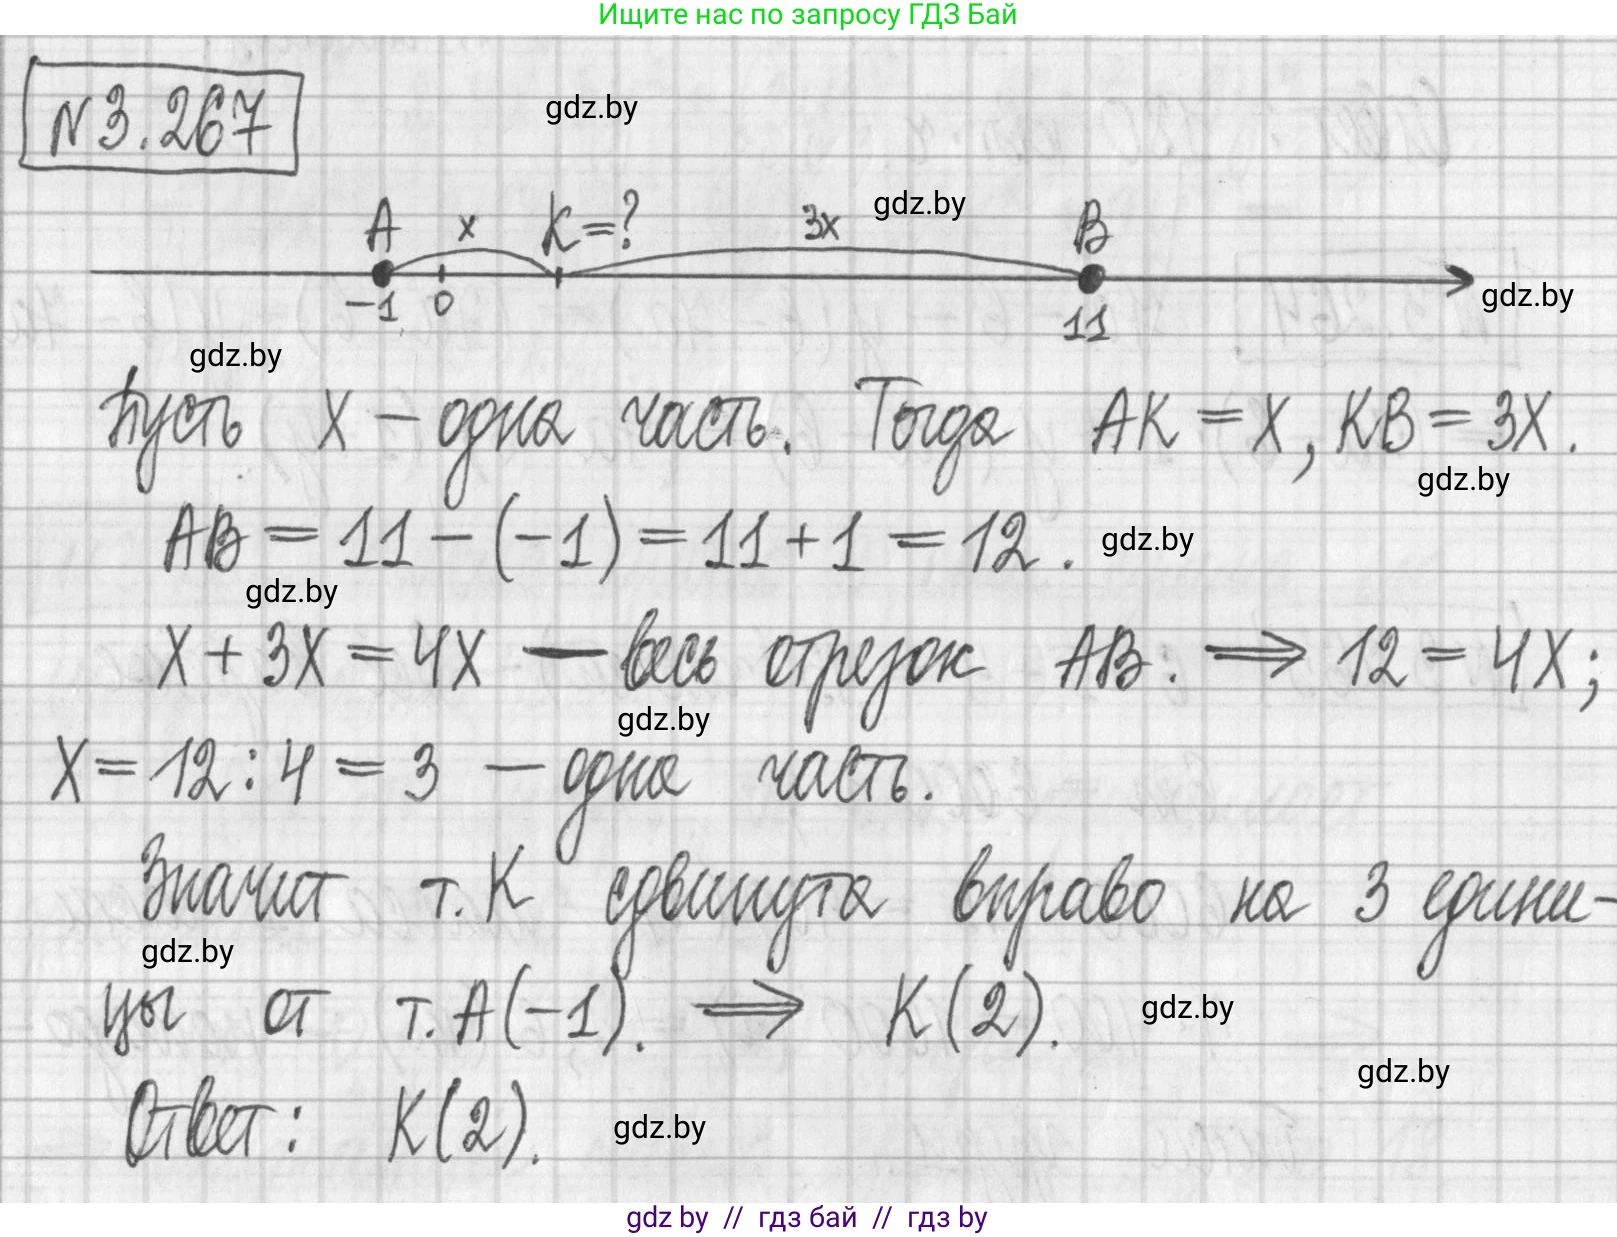 Ищите нас по запросу ГДЗ Бай
N 3.267
gdz.by
A x K=? 3x gdz.by B
-1 0 11 gdz.by
gdz.by
Пусть X – одна часть. Тогда AK = X, KB = 3X.
gdz.by
AB = 11 - (-1) = 11 + 1 = 12. gdz.by
gdz.by
X + 3X = 4X — весь отрезок AB. ⟹ 12 = 4X;
gdz.by
X = 12 : 4 = 3 – одна часть.
Значит т. K сдвинута вправо на 3 едини-
gdz.by
цы от т. A(-1). ⟹ K(2). gdz.by
gdz.by
Ответ: K(2). gdz.by
gdz by // гдз бай // гдз by